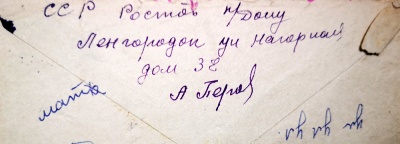 ССР Ростов н/Дону
Ленгородок ул Нагорная
дом 38
А Перов
мата